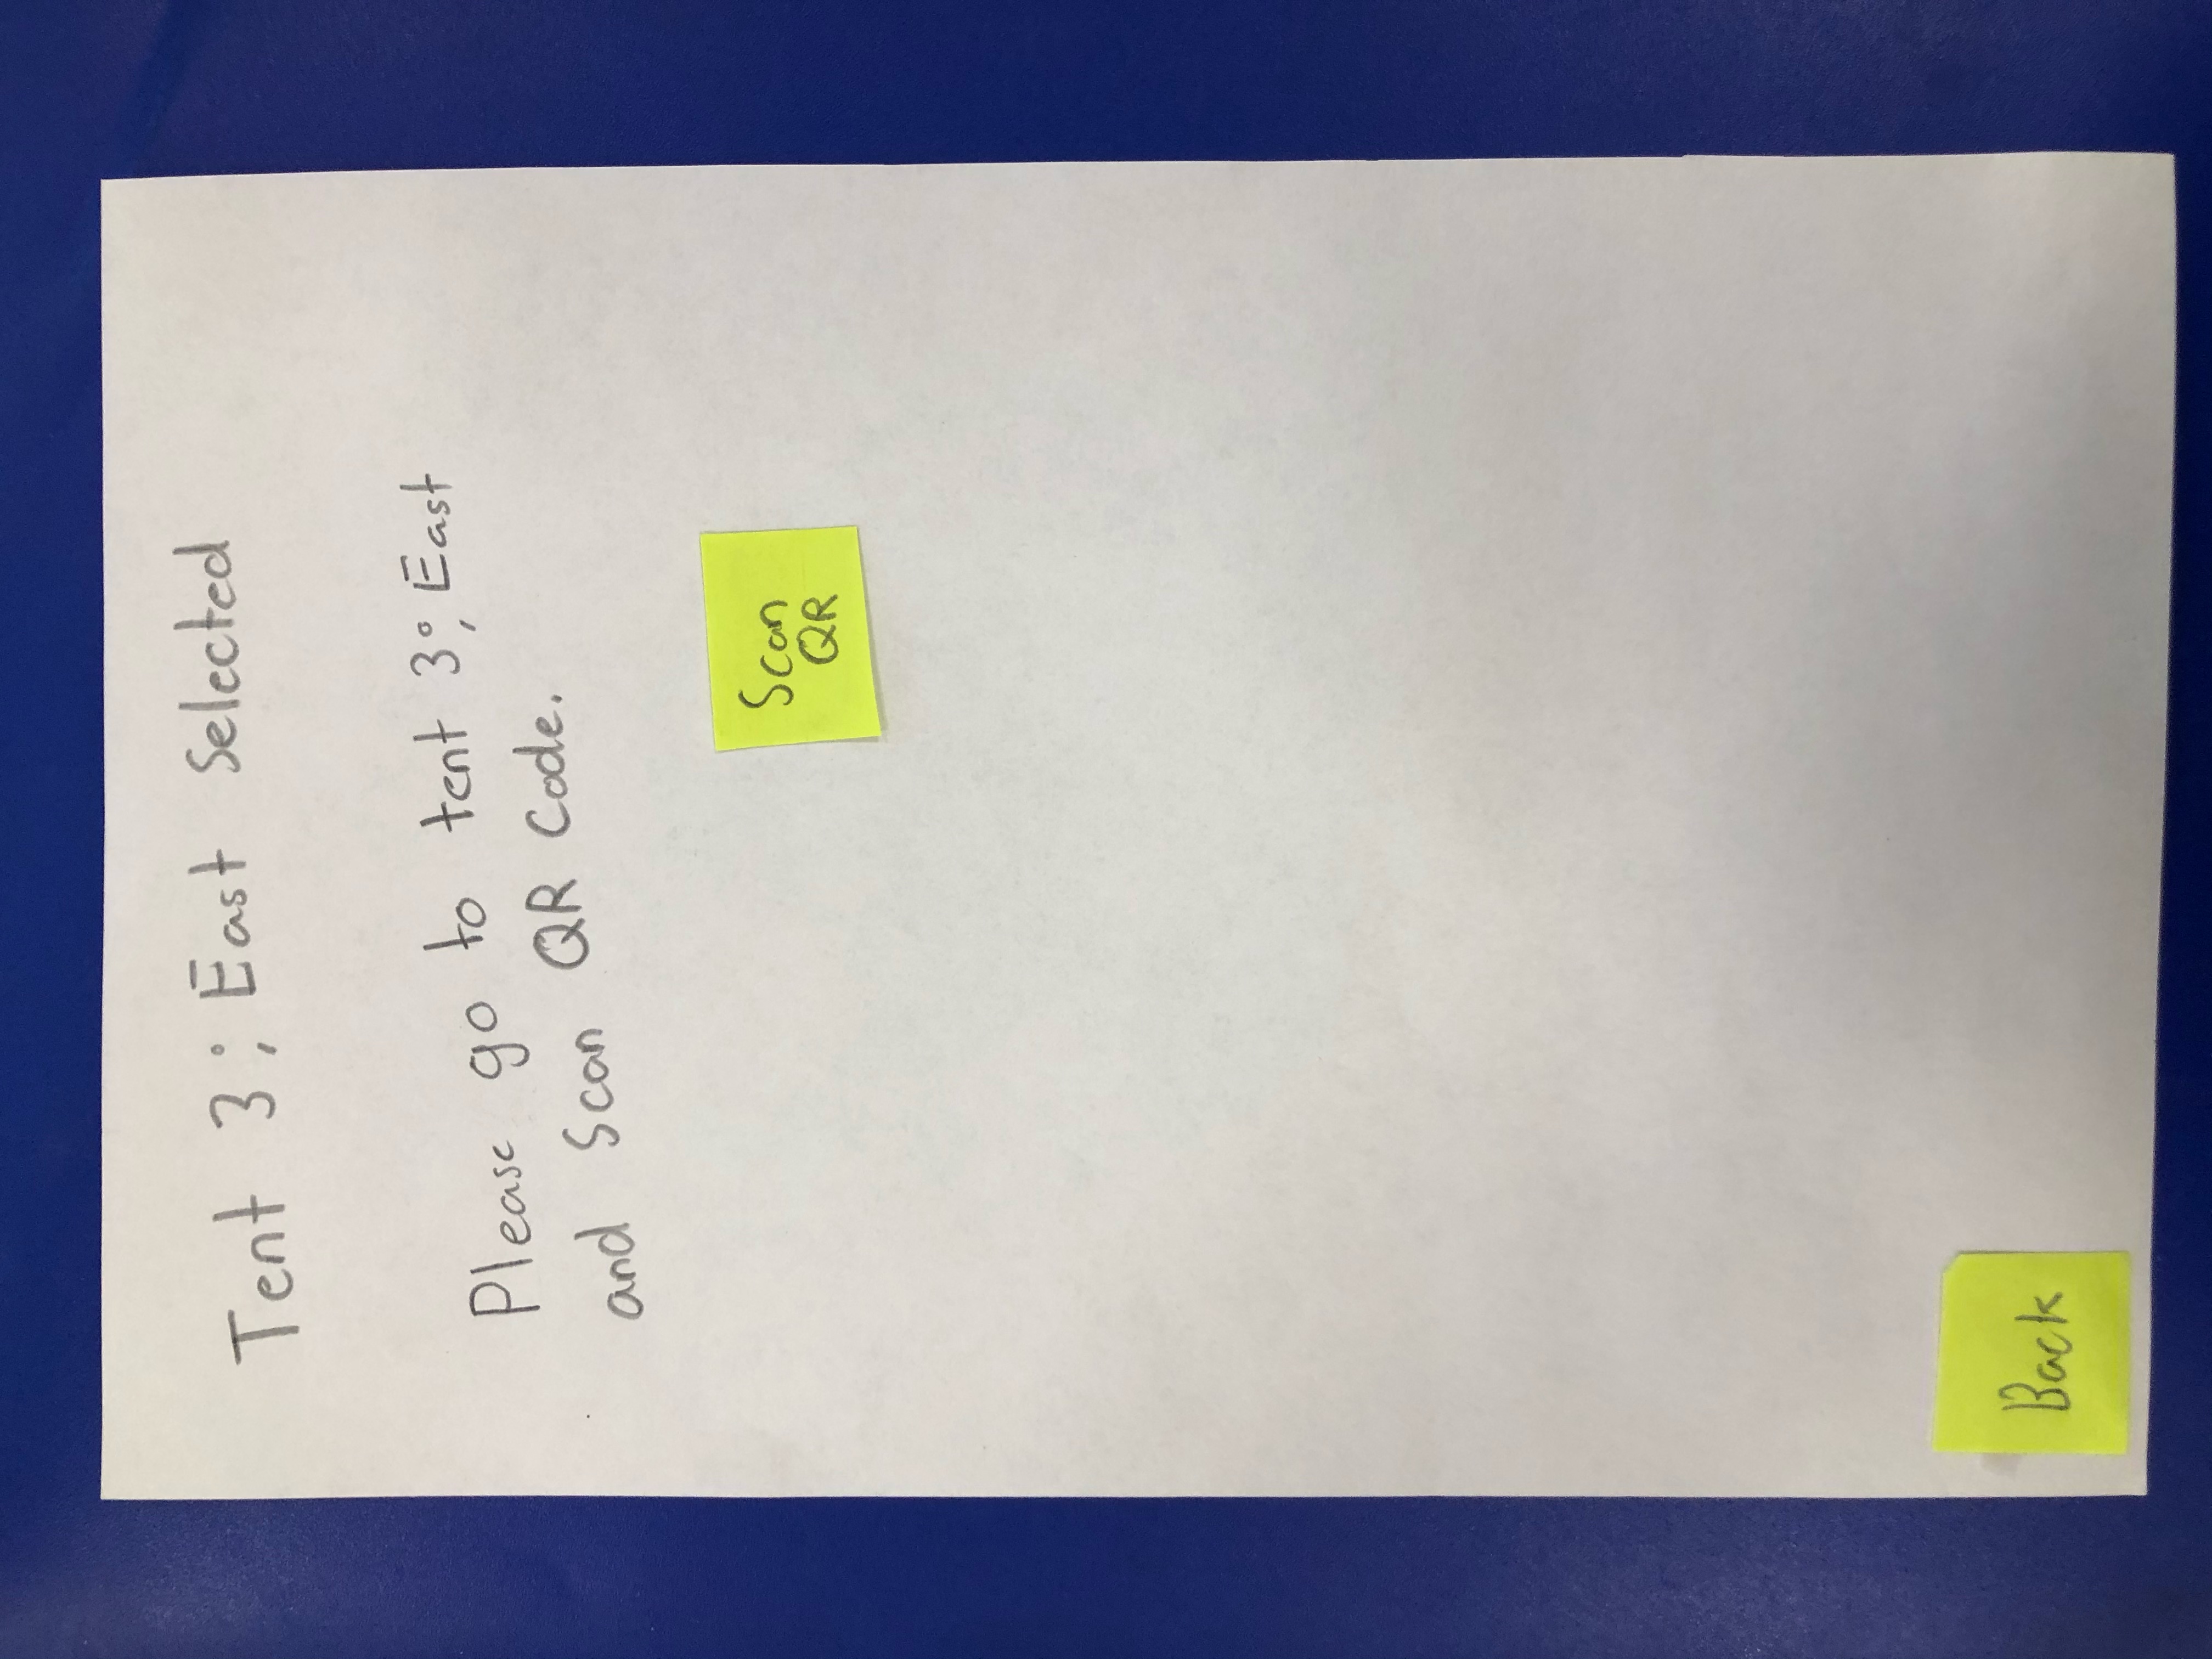 Tent 3; East Selected
Please go to tent 3; East
and Scan QR Code.
Scan
QR
Back